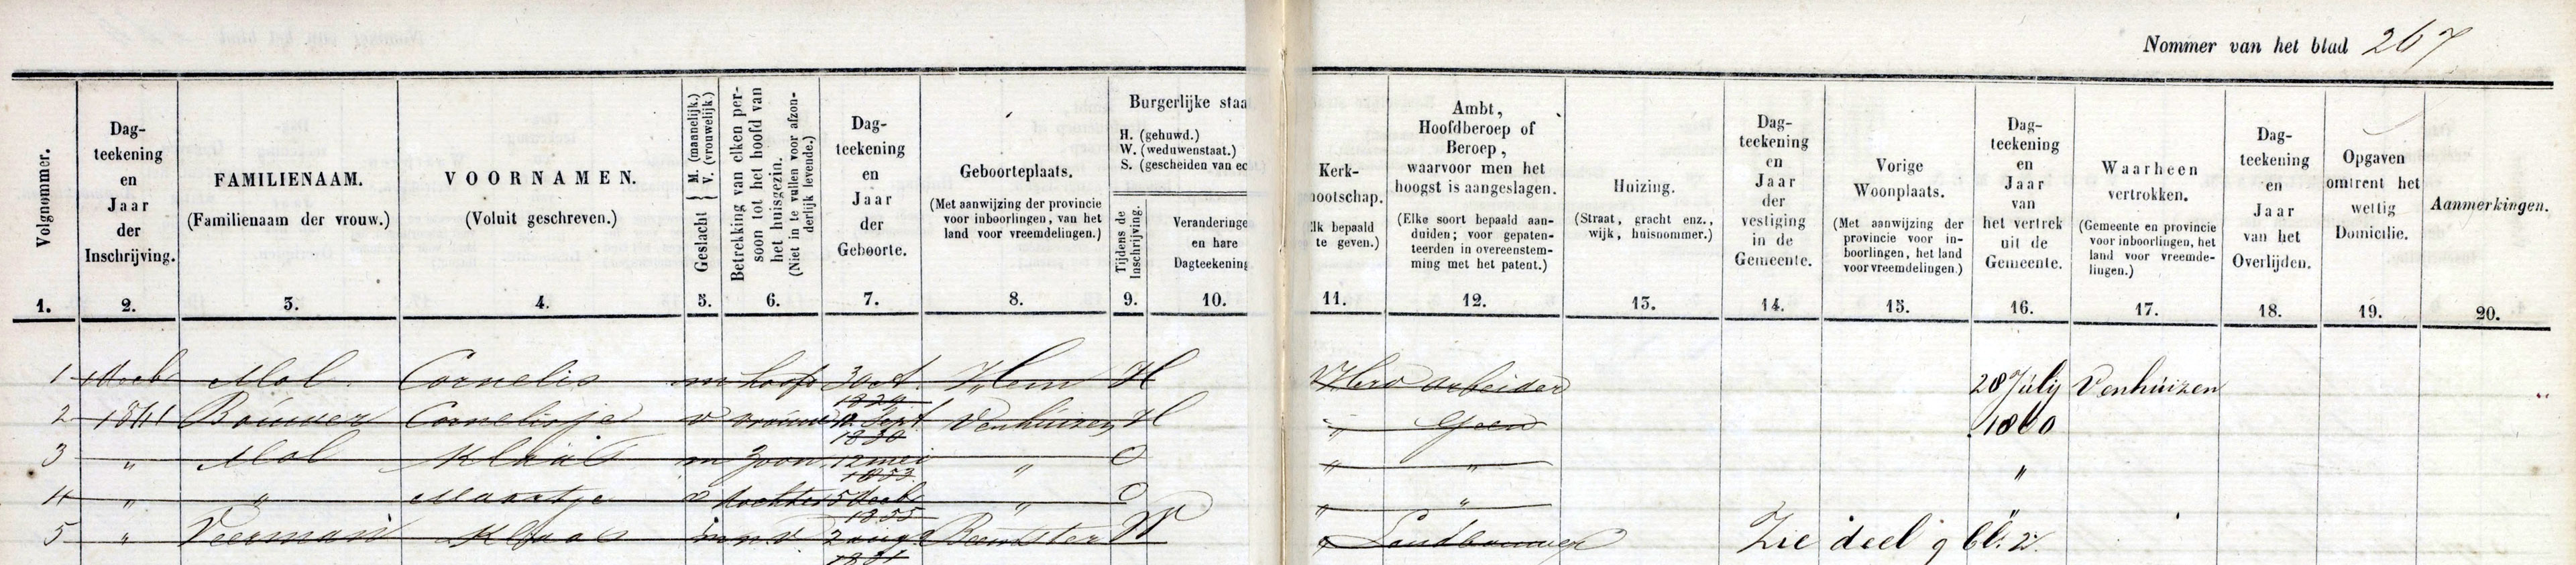 Nommer van het blad 267
Volgnommer.
Dag-
teekening
en
Jaar
der
Inschrijving.
FAMILIENAAM.
(Familienaam der vrouw.)
VOORNAMEN.
(Voluit geschreven.)
Geslacht { M. (mannelijk.) V. (vrouwelijk.)
Betrekking van elken per-
soon tot het hoofd van
het huisgezin.
(Niet in te vullen voor afzon-
derlijk levende.)
Dag-
teekening
en
Jaar
der
Geboorte.
Geboorteplaats.
(Met aanwijzing der provincie
voor inboorlingen, van het
land voor vreemdelingen.)
Burgerlijke staa
H. (gehuwd.)
W. (weduwenstaat.)
S. (gescheiden van ec
Tijdens de
Inschrijving.
Veranderinge
en hare
Dagteekening
Kerk-
nootschap.
lk bepaald
te geven.)
Ambt,
Hoofdberoep of
Beroep,
waarvoor men het
hoogst is aangeslagen.
(Elke soort bepaald aan-
duiden; voor gepaten-
teerden in overeenstem-
ming met het patent.)
Huizing.
(Straat, gracht enz.,
wijk, huisnommer.)
Dag-
teekening
en
Jaar
der
vestiging
in de
Gemeente.
Vorige
Woonplaats.
(Met aanwijzing der
provincie voor in-
boorlingen, het land
voor vreemdelingen.)
Dag-
teekening
en
Jaar
van
het vertrek
uit de
Gemeente.
Waarheen
vertrokken.
(Gemeente en provincie
voor inboorlingen, het
land voor vreemde-
lingen.)
Dag-
teekening
en
Jaar
van het
Overlijden.
Opgaven
omtrent het
wettig
Domicilie.
Aanmerkingen.
1. 2. 3. 4. 5. 6. 7. 8. 9. 10. 11. 12. 13. 14. 15. 16. 17. 18. 19. 20.
1 Mol Cornelis m hoofd 3 oct. Hem H Herv arbeider 28 Julij Venhuizen
1824
2 Bouwer Cornelisje v vrouw Sept Venhuizen H " Geen 1860
1830
3 " Mol Klaas m zoon 12 mei " O " " "
1853
4 " " Maartje v dochter 5 Decbr " O " "
1855
5 " Veerman Klaas m Beemster W " Landbouwer Zie deel 9 bl. 2.